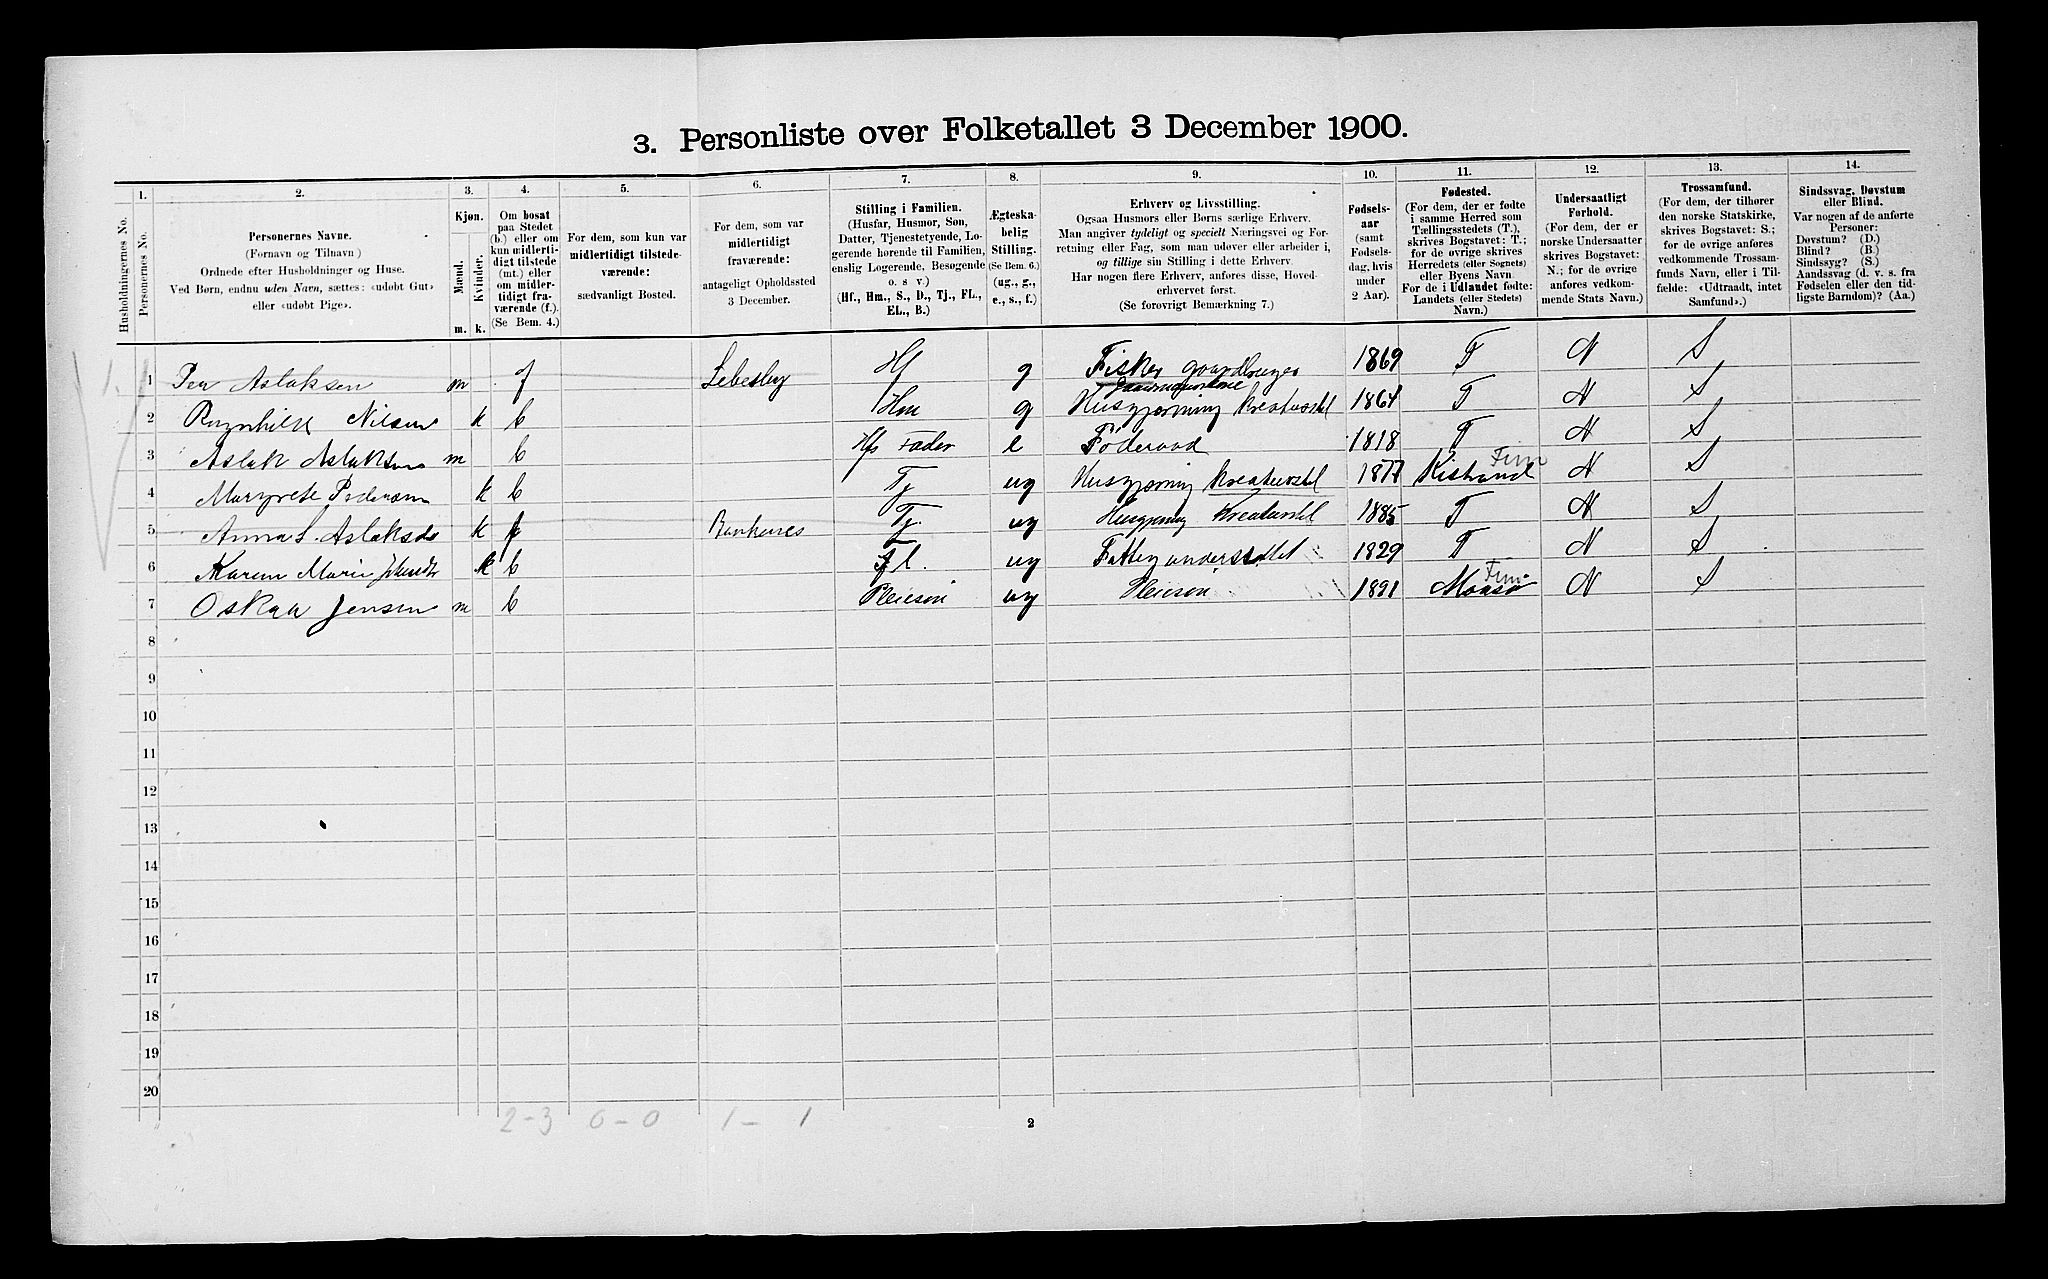 3. Personliste over Folketallet 3 December 1900.
1. 2. 3. 4. 5. 6. 7. 8. 9. 10. 11. 12. 13. 14.
Husholdningernes No.
Personernes No.
Personernes Navne.
(Fornavn og Tilnavn)
Ordnede efter Husholdninger og Huse.
Ved Børn, endnu uden Navn, sættes: «udøbt Gut»
eller «udøbt Pige».
Kjøn.
Mænd.
Kvinder.
m. k.
Om bosat
paa Stedet
(b.) eller om
kun midlerti-
digt tilstede
(mt.) eller
om midler-
tidigt fra-
værende (f.).
(Se Bem. 4.)
For dem, som kun var
midlertidigt tilstede-
værende:
sædvanligt Bosted.
For dem, som var
midlertidigt
fraværende:
antageligt Opholdssted
3 December.
Stilling i Familien.
(Husfar, Husmor, Søn,
Datter, Tjenestetyende, Lo-
gerende hørende til Familien,
enslig Logerende, Besøgende
o. s. v.)
(Hf., Hm., S., D., Tj., FL.,
EL., B.)
Ægteska-
belig
Stilling.
(Se Bem. 6.)
(ug., g.,
e., s., f.)
Erhverv og Livsstilling.
Ogsaa Husmors eller Børns særlige Erhverv.
Man angiver tydeligt og specielt Næringsvei og For-
retning eller Fag, som man udøver eller arbeider i,
og tillige sin Stilling i dette Erhverv.
Har nogen flere Erhverv, anføres disse, Hoved-
erhvervet først.
(Se forøvrigt Bemærkning 7.)
Fødsels-
aar
(samt
Fødsels-
dag, hvis
under
2 Aar).
Fødested.
(For dem, der er fødte
i samme Herred som
Tællingsstedets (T.),
skrives Bogstavet: T.;
for de øvrige skrives
Herredets (eller Sognets)
eller Byens Navn.
For de i Udlandet fødte:
Landets (eller Stedets)
Navn.)
Undersaatligt
Forhold.
(For dem, der er
norske Undersaatter
skrives Bogstavet:
N.; for de øvrige
anføres vedkom-
mende Stats Navn.)
Trossamfund.
(For dem, der tilhører
den norske Statskirke,
skrives Bogstavet: S.;
for de øvrige anføres
vedkommende Trossam-
funds Navn, eller i Til-
fælde: «Udtraadt, intet
Samfund».)
Sindssvag, Døvstum
eller Blind.
Var nogen af de anførte
Personer:
Døvstum? (D.)
Blind? (B.)
Sindssyg? (S.)
Aandssvag (d. v. s. fra
Fødselen eller den tid-
ligste Barndom)? (Aa.)
1 Per Aslaksen m f Lebesby Hf g Fisker gaardbruger 1869 T N S
2 Nilsen k b Hm g Husgjerning Kreaturstel 1864 T N S
3 Aslak Aslaksen m b Hfs Fader e Føderaad 1818 T N S
4 Margrete Pedersen k b Tj ug Husgjerning Kreaturstel 1877 Kistrand Finm N S
5 Anna S. Aslaksdr k f Tj. ug Husgjerning Kreaturstel 1885 T N S
6 Karen Marie k b fl. ug Fattigunderstøttet 1829 T N S
7 Oskar Jensen m b Pleiesøn ug Pleiesøn 1891 Maasø Finm. N S
8
9
10
11
12
13
14
15
16
17
18
19
20
2-3 0-0 1-1
2